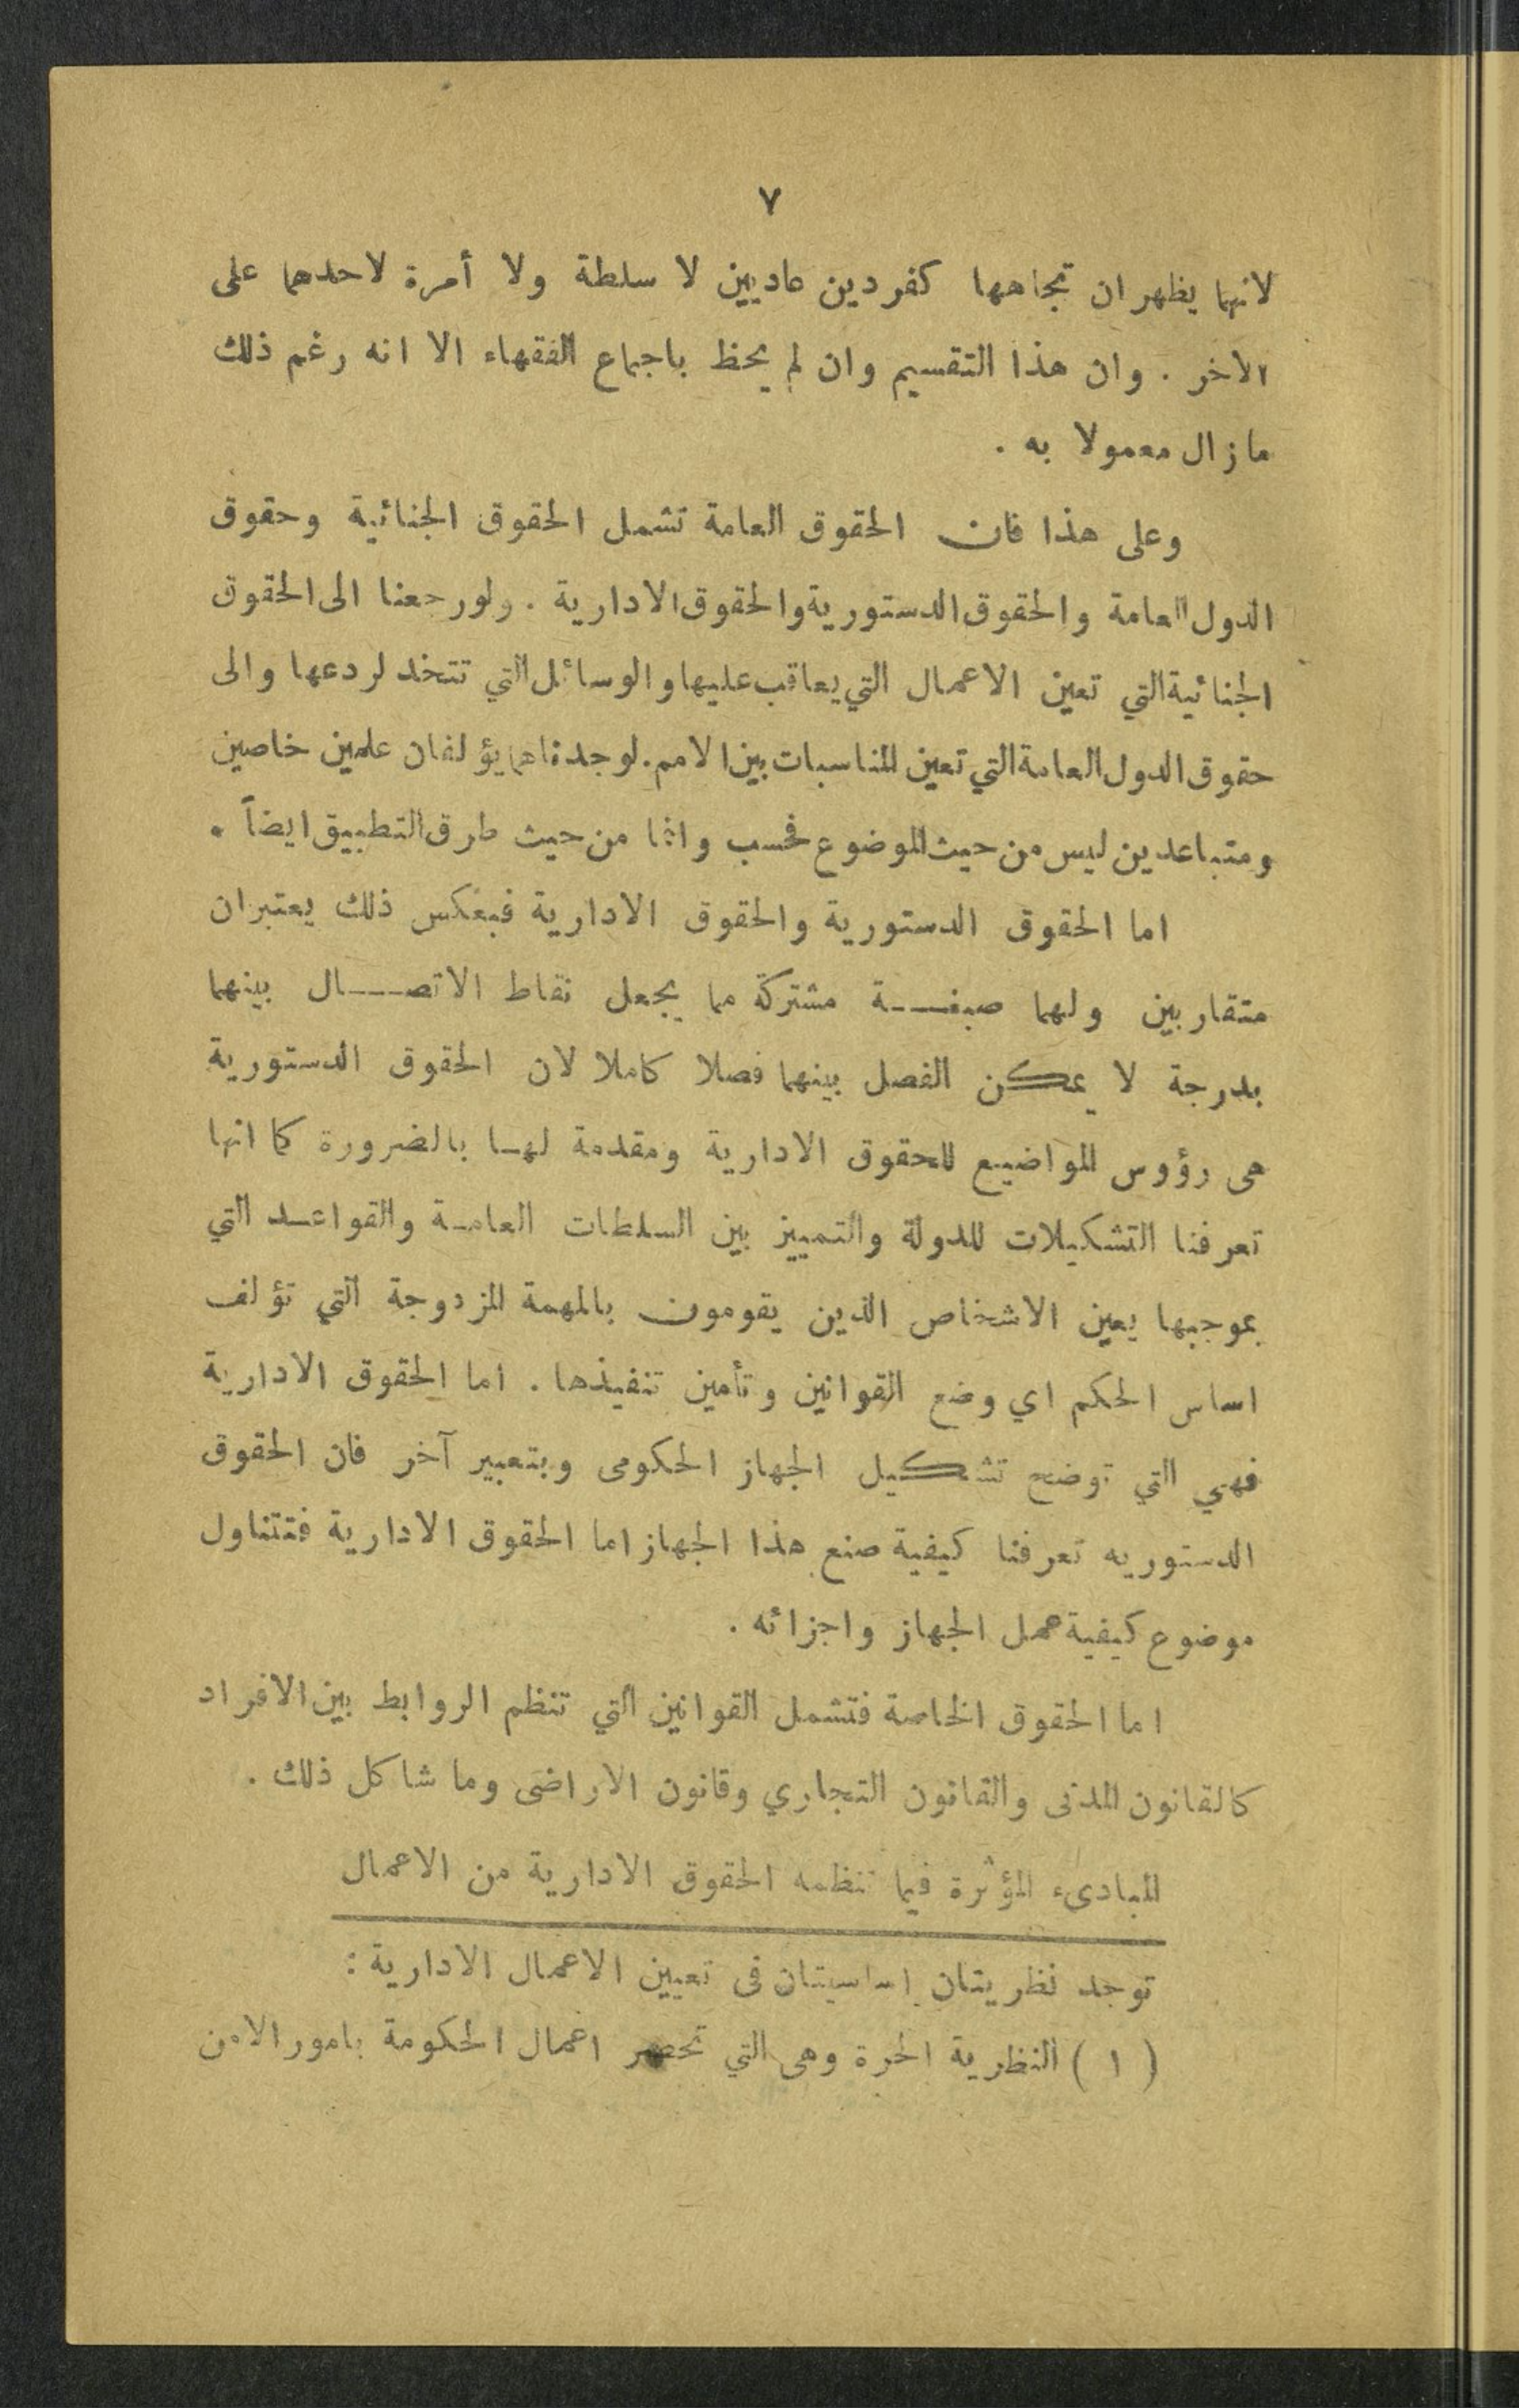 ٧
لانهما يظهران تجاهها كفردين عاديين لا سلطة ولا أمرة لاحدهما على
الاخر . وان هذا التقسيم وان لم يحظ باجماع الفقهاء الا انه رغم ذلك
مازال معمولا به .
وعلى هذا فان الحقوق العامة تشمل الحقوق الجنائية وحقوق
الدول العامة والحقوق الدستورية والحقوق الادارية . ولو رجعنا الى الحقوق
الجنائية التي تعين الاعمال التي يعاقب عليها والوسائل التي تتخذ لردعها والى
حقوق الدول العامة التي تعين المناسبات بين الامم . لوجدناهما يؤلفان علمين خاصين
ومتباعدين ليس من حيث الموضوع فحسب وانما من حيث طرق التطبيق ايضاً .
اما الحقوق الدستورية والحقوق الادارية فبعكس ذلك يعتبران
متقاربين ولهما صبغة مشتركة مما يجعل نقاط الاتصال بينهما
بدرجة لا يمكن الفصل بينهما فصلا كاملا لان الحقوق الدستورية
هى رؤوس المواضيع للحقوق الادارية ومقدمة لها بالضرورة كما انها
تعرفنا التشكيلات للدولة والتمييز بين السلطات العامة والقواعد التي
بموجبها يعين الاشخاص الذين يقومون بالمهمة المزدوجة التي تؤلف
اساس الحكم اي وضع القوانين وتأمين تنفيذها . اما الحقوق الادارية
فهي التي توضح تشكيل الجهاز الحكومى وبتعبير آخر فان الحقوق
الدستوريه تعرفنا كيفية صنع هذا الجهاز اما الحقوق الادارية فتتناول
موضوع كيفية عمل الجهاز واجزائه .
اما الحقوق الخاصة فتشمل القوانين التي تنظم الروابط بين الافراد
كالقانون المدنى والقانون التجاري وقانون الاراضى وما شاكل ذلك .
المبادىء المؤثرة فيما تنظمه الحقوق الادارية من الاعمال
توجد نظريتان اساسيتان فى تعيين الاعمال الادارية :
( ١ ) النظرية الحرة وهى التي تحصر اعمال الحكومة بامور الامن